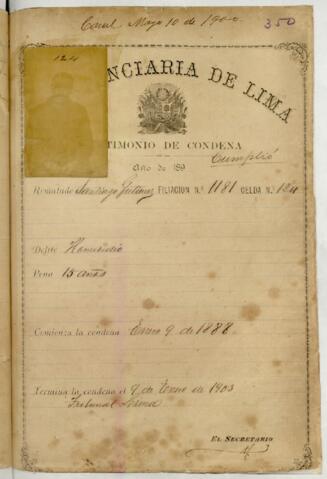 Mayo 10 de 1900
350
124
NCIARIA DE LIMA
TIMONIO DE CONDENA
Cumplió
Año de 189
Rematado Santiago FILIACION N.º 1181 CELDA N.º 124
Delito Homicidio
Pena 15 años
Comienza la condena Enero 9 de 1888
Termina la condena el 9 de Enero de 1903
Tribunal
EL SECRETARIO